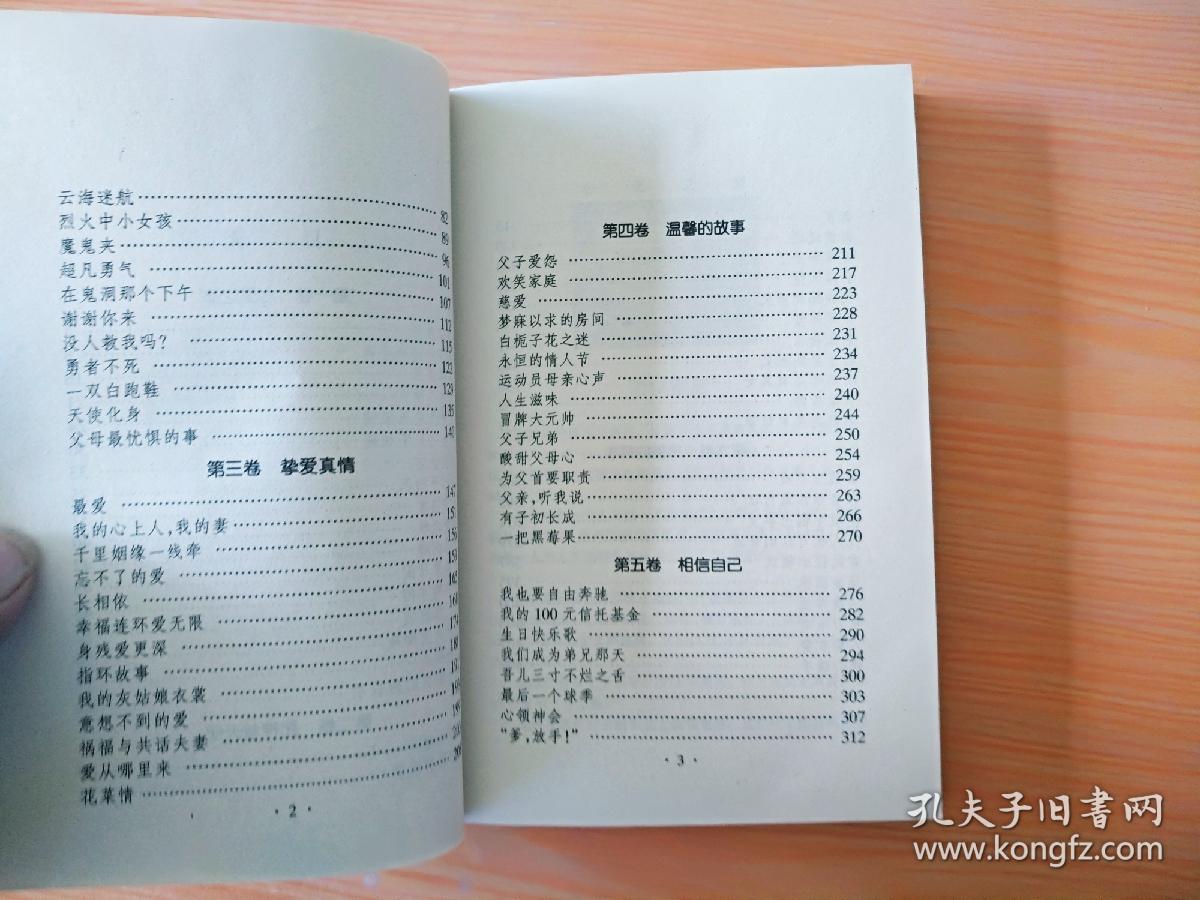 云海迷航 82
烈火中小女孩 89
魔鬼夹 96
超凡勇气 101
在鬼洞那个下午 107
谢谢你来 112
没人救我吗? 115
勇者不死 123
一双白跑鞋 129
天使化身 135
父母最忧惧的事
第三卷 挚爱真情
最爱
我的心上人,我的妻
千里姻缘一线牵
忘不了的爱
长相依
幸福连环爱无限
身残爱更深
指环故事
我的灰姑娘衣裳
意想不到的爱
祸福与共话夫妻
爱从哪里来
花菜情
·2·
第四卷 温馨的故事
父子爱怨 211
欢笑家庭 217
慈爱 223
梦寐以求的房间 228
白栀子花之迷 231
永恒的情人节 234
运动员母亲心声 237
人生滋味 240
冒牌大元帅 244
父子兄弟 250
酸甜父母心 254
为父首要职责 259
父亲,听我说 263
有子初长成 266
一把黑莓果 270
第五卷 相信自己
我也要自由奔驰 276
我的100元信托基金 282
生日快乐歌 290
我们成为弟兄那天 294
吾儿三寸不烂之舌 300
最后一个球季 303
心领神会 307
“爹,放手!” 312
·3·
孔夫子旧书网
www.kongfz.com